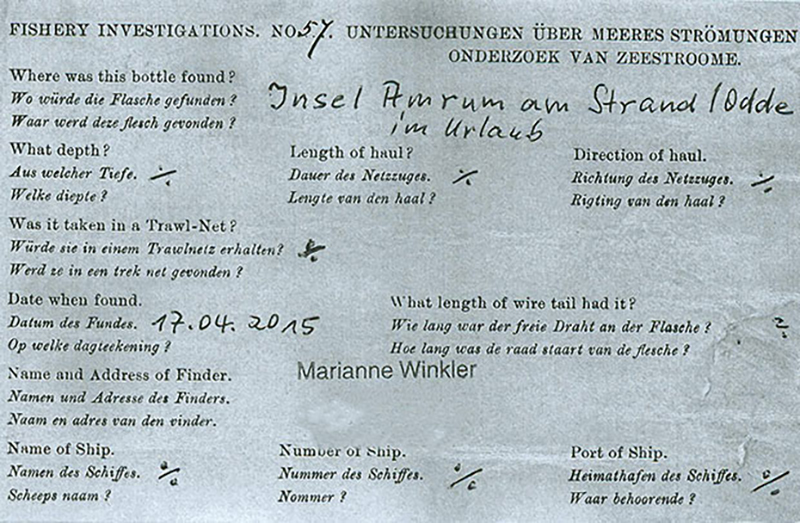 FISHERY INVESTIGATIONS. NO 57. UNTERSUCHUNGEN ÜBER MEERES STRÖMUNGEN
ONDERZOEK VAN ZEESTROOME.
Where was this bottle found?
Wo würde die Flasche gefunden?
Waar werd deze flesch gevonden?
Insel Amrum am Strand/Odde
im Urlaub
What depth?
Aus welcher Tiefe. ./.
Welke diepte?
Length of haul?
Dauer des Netzzuges. ./.
Lengte van den haal?
Direction of haul.
Richtung des Netzzuges. ./.
Rigting van den haal?
Was it taken in a Trawl-Net?
Würde sie in einem Trawlnetz erhalten?
Werd ze in een trek net gevonden?
Date when found.
Datum des Fundes. 17.04.2015
Op welke dagteekening?
What length of wire tail had it?
Wie lang war der freie Draht an der Flasche? ?
Hoe lang was de raad staart van de flesche?
Name and Address of Finder.
Namen und Adresse des Finders.
Naam en adres van den vinder.
Marianne Winkler
Name of Ship.
Namen des Schiffes. ./.
Scheeps naam?
Number of Ship.
Nummer des Schiffes. ./.
Nommer?
Port of Ship.
Heimathafen des Schiffes. ./.
Waar behoorende?